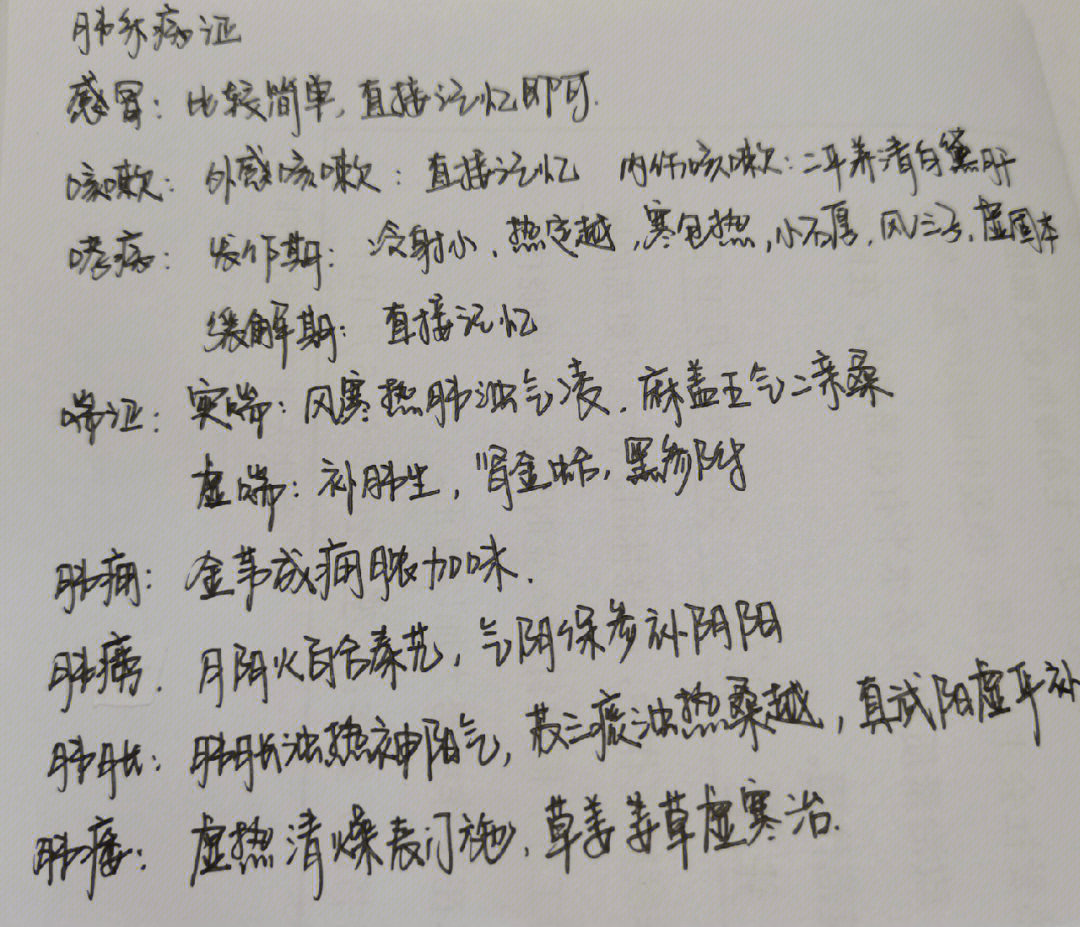 肺系病证
感冒：比较简单，直接记忆即可．
咳嗽：外感咳嗽：直接记忆 内伤咳嗽：二平养清白黛肝
哮病：发作期：冷射小，热定越，寒包热，小石厚，风三子，虚固本
缓解期：直接记忆
喘证：实喘：风寒热肺浊气凌．麻盖五气二亲桑
虚喘：补肺生，肾金蛤，黑参附
肺痈：金苇成痈脓加味．
肺痨．月阴火百合秦艽，气阴保参补阴阳
肺胀：肺胀浊热神阳气，苏三痰浊热桑越，真武阳虚平补
肺痿：虚热清燥麦门施，草姜姜草虚寒治．